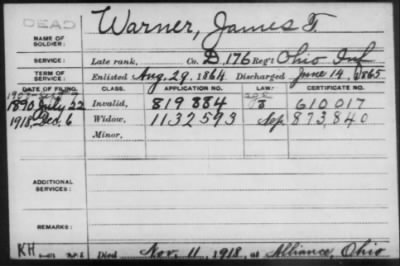 DEAD
Warner, James F.
NAME OF SOLDIER:
SERVICE: Late rank, Co. D, 176 Reg't Ohio Inf
TERM OF SERVICE: Enlisted Aug. 29, 1864 Discharged June 14, 1865
DATE OF FILING. CLASS. APPLICATION NO. LAW. CERTIFICATE NO.
1890 July 22 Invalid, 819884 610017
1918, Dec. 6 Widow, 1132593 873,840
Minor,
ADDITIONAL SERVICES:
REMARKS:
KH
Died Nov. 11, 1918, at Alliance, Ohio